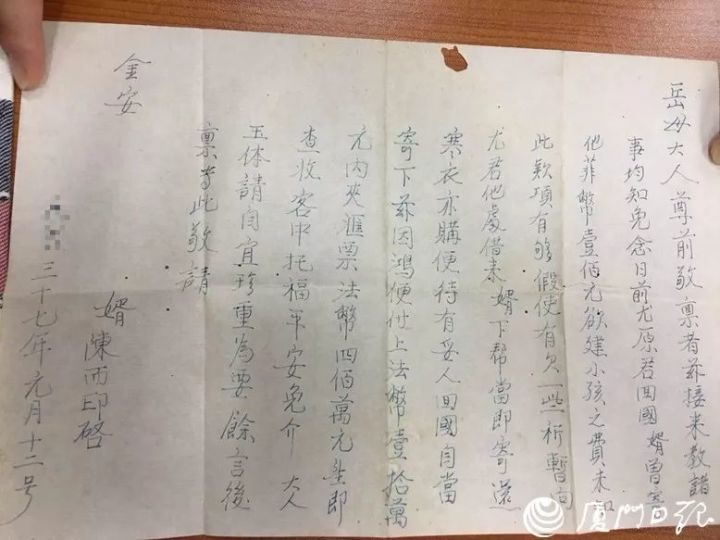 岳母大人尊前敬禀者茲接来教諸
事均知免念日前尤原君回國婿曾寄
他菲幣壹佰元欲建小孩之費未知
此欵項有够假使有欠一些祈暫向
尤君他處借来婿下帮當即寄還
寒衣亦購便待有妥人回國自當
寄下茲因鴻便付上法幣壹拾萬
元内夾匯票法幣四佰萬元至即
查收客中托福平安免介 大人
玉体請自宜珍重為要餘言後
禀專此敬請
金安
婿陳而印啓
三十七年元月十二号
廈門日報